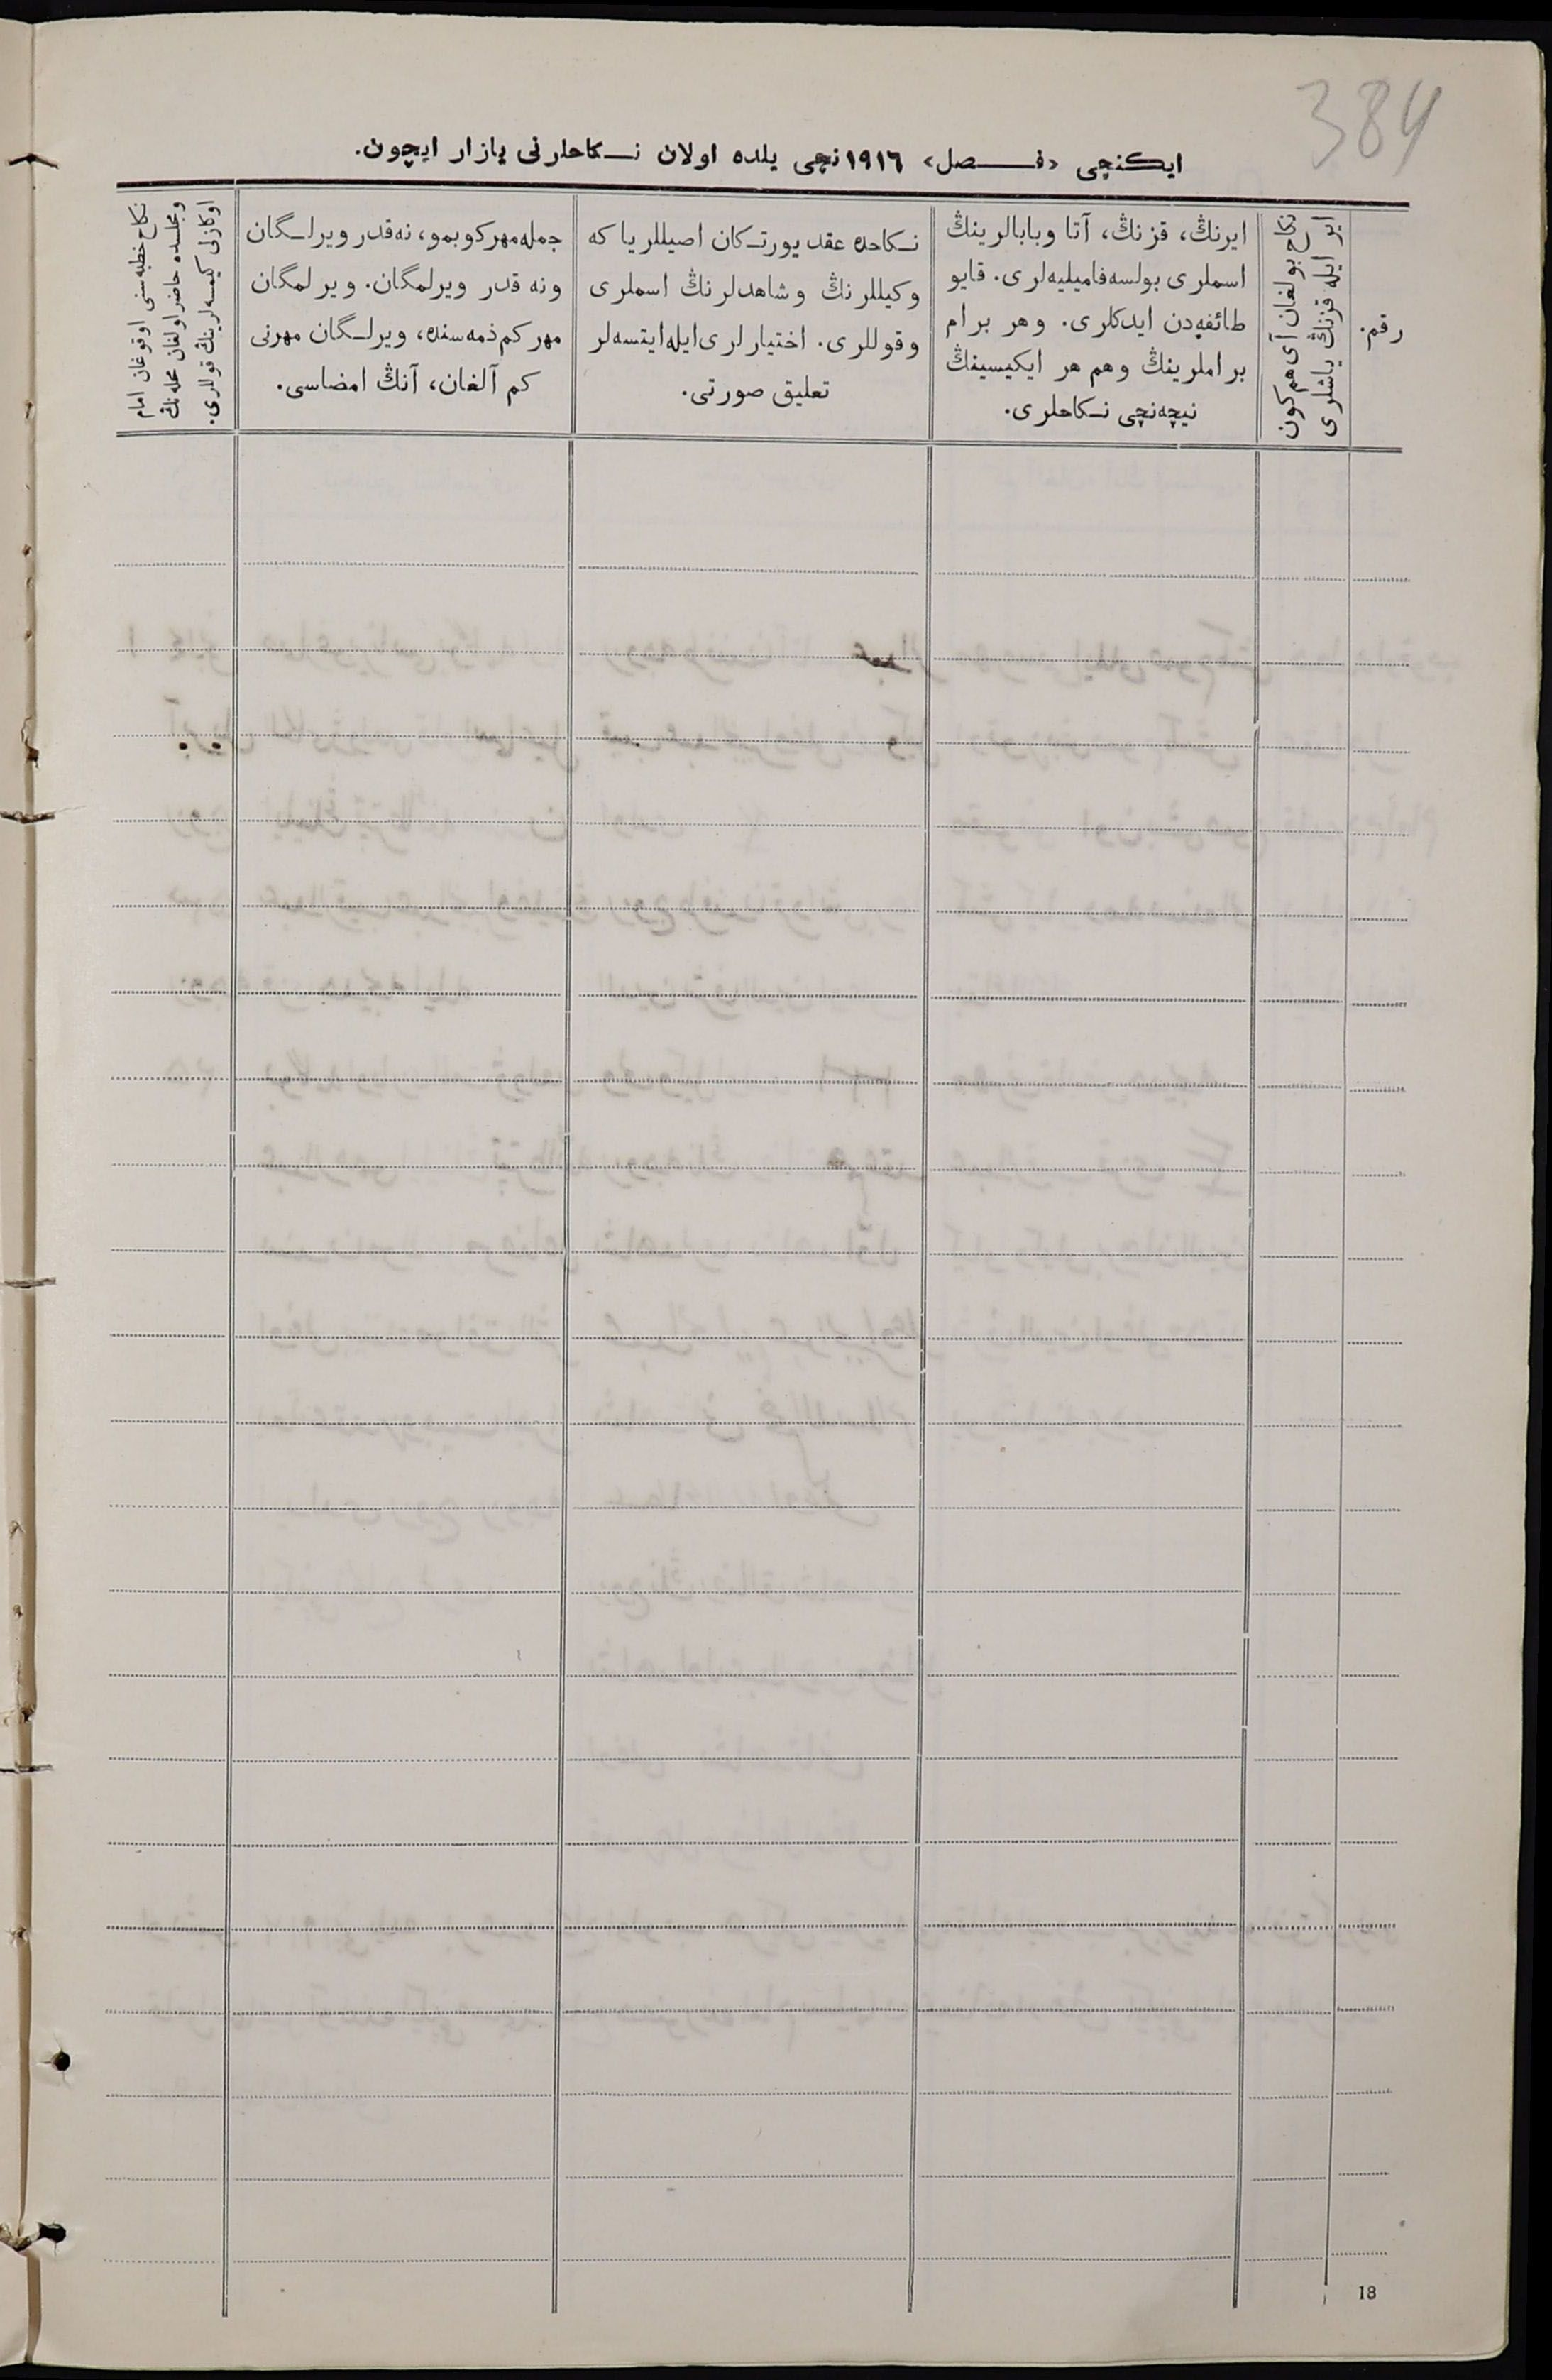 384
ایكنچی «فـــصل» ١٩١٦نچی یلده اولان نــكاحلرنی یازار ایچون.
رقم.
نكاح بولغان آی هم كون
ایر ایله قزنڭ یاشلری
ایرنڭ، قزنڭ، آتا وبابالرینڭ
اسملری بولسه فامیلیه‌لری. قایو
طائفه‌دن ایدكلری. وهر برام
براملرینڭ وهم هر ایكیسینڭ
نیچه‌نچی نــكاحلری.
نــكاحده عقد یورتــكان اصیللریا كه
وكیللرنڭ وشاهدلرنڭ اسملری
وقوللری. اختیارلری ایله ایتسه‌لر
تعلیق صورتی.
جمله مهر كوبمو، نه‌قدر ویرلــگان
ونه قدر ویرلمگان. ویرلمگان
مهر كم ذمه‌سنده، ویرلــگان مهرنی
كم آلغان، آنڭ امضاسی.
نكاح خطبه‌سنی اوقوغان امام
ومجلسده حاضر اولغان محله‌نڭ
اوكازلی كیمسه‌لرینڭ قوللری.
18